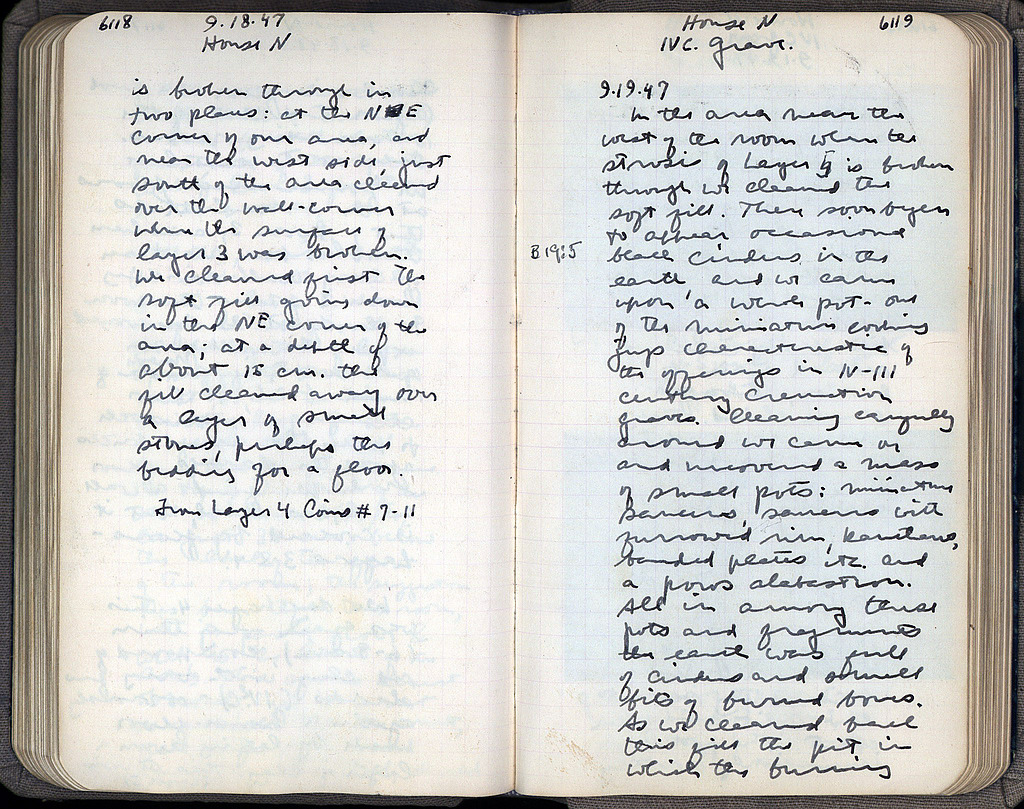 6118
9.18.47
House N
is broken through in
two places: at the NE
corner of our area, and
near the west side, just
south of the area cleared
over the wall-corner
where the surface of
layer 3 was broken.
We cleaned first the
soft fill going down
in the NE corner of the
area; at a depth of
about 15 cm. the
fill cleaned away over
a layer of small
stones, perhaps the
bedding for a floor.
From Layer 4 Coins # 7-11
House N
6119
IVc. Grave.
9.19.47
In the area near the
west of the room where the
strosis of Layer is broken
through we cleaned the
soft fill. There soon began
to appear occasional
black cinders in the
earth and we came
upon a whole pot - one
of the miniature cooking
jugs characteristic of
the offerings in IV-III
century cremation
graves. Cleaning carefully
around we came on
and uncovered a mass
of small pots: miniature
saucers, saucers with
furrowed rim, kantharoi,
banded plates etc. and
a poros alabastron.
All in among these
pots and fragments
the earth was full
of cinders and small
bits of burned bones.
As we cleaned back
this fill the pit in
which the burning
B 1915